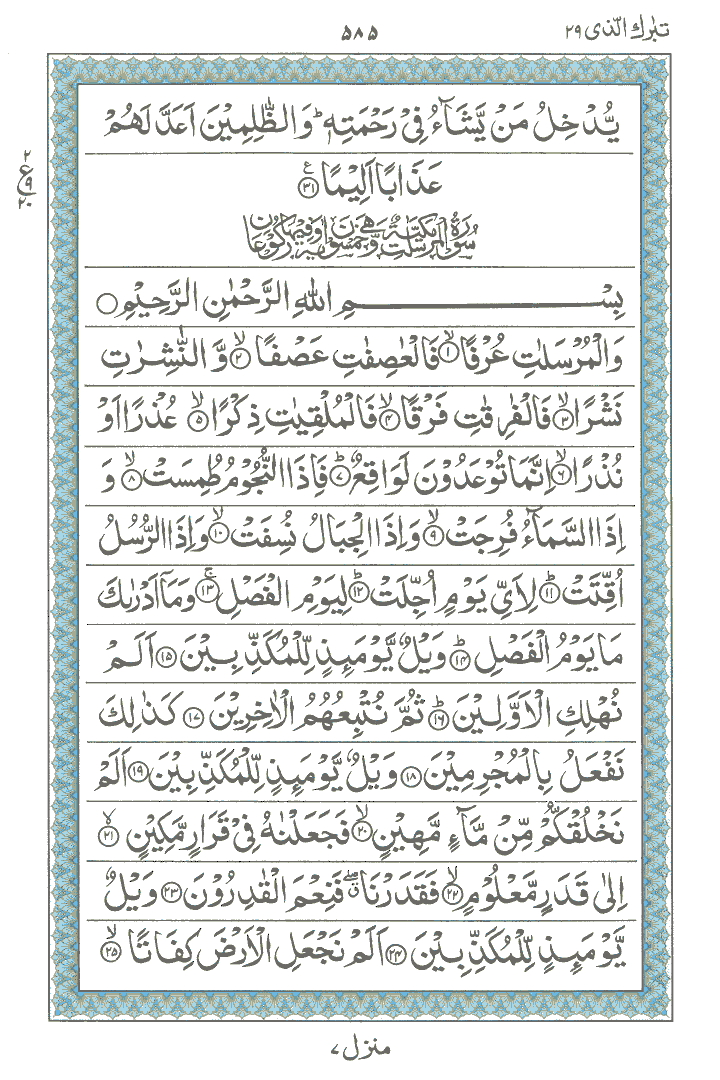 تبٰرك الذی ۲۹
۵۸۵
یُّدْخِلُ مَنْ یَّشَآءُ فِیْ رَحْمَتِهٖ ؕ وَالظّٰلِمِیْنَ اَعَدَّ لَهُمْ
عَذَابًا اَلِیْمًا ۳۱ ع
۲
ع
۹
۲۰
سُوْرَةُ الْمُرْسَلٰتِ مَكِّیَّةٌ وَّهِیَ خَمْسُوْنَ اٰیَةً وَّفِیْهَا رُكُوْعَانِ
بِسْمِ اللهِ الرَّحْمٰنِ الرَّحِیْمِ ○
وَالْمُرْسَلٰتِ عُرْفًا ۙ۱ فَالْعٰصِفٰتِ عَصْفًا ۙ۲ وَّ النّٰشِرٰتِ
نَشْرًا ۙ۳ فَالْفٰرِقٰتِ فَرْقًا ۙ۴ فَالْمُلْقِیٰتِ ذِكْرًا ۙ۵ عُذْرًا اَوْ
نُذْرًا ۙ۶ اِنَّمَا تُوْعَدُوْنَ لَوَاقِعٌ ؕ۷ فَاِذَا النُّجُوْمُ طُمِسَتْ ۙ۸ وَ
اِذَا السَّمَآءُ فُرِجَتْ ۙ۹ وَاِذَا الْجِبَالُ نُسِفَتْ ۙ۱۰ وَاِذَا الرُّسُلُ
اُقِّتَتْ ؕ۱۱ لِاَیِّ یَوْمٍ اُجِّلَتْ ؕ۱۲ لِیَوْمِ الْفَصْلِ ۚ۱۳ وَمَاۤ اَدْرٰىكَ
مَا یَوْمُ الْفَصْلِ ؕ۱۴ وَیْلٌ یَّوْمَىِٕذٍ لِّلْمُكَذِّبِیْنَ ۱۵ اَلَمْ
نُهْلِكِ الْاَوَّلِیْنَ ؕ۱۶ ثُمَّ نُتْبِعُهُمُ الْاٰخِرِیْنَ ۱۷ كَذٰلِكَ
نَفْعَلُ بِالْمُجْرِمِیْنَ ۱۸ وَیْلٌ یَّوْمَىِٕذٍ لِّلْمُكَذِّبِیْنَ ۱۹ اَلَمْ
نَخْلُقْكُّمْ مِّنْ مَّآءٍ مَّهِیْنٍ ۙ۲۰ فَجَعَلْنٰهُ فِیْ قَرَارٍ مَّكِیْنٍ ۙ۲۱
اِلٰی قَدَرٍ مَّعْلُوْمٍ ۙ۲۲ فَقَدَرْنَا ۖق فَنِعْمَ الْقٰدِرُوْنَ ۲۳ وَیْلٌ
یَّوْمَىِٕذٍ لِّلْمُكَذِّبِیْنَ ۲۴ اَلَمْ نَجْعَلِ الْاَرْضَ كِفَاتًا ۙ۲۵
منزل ۷